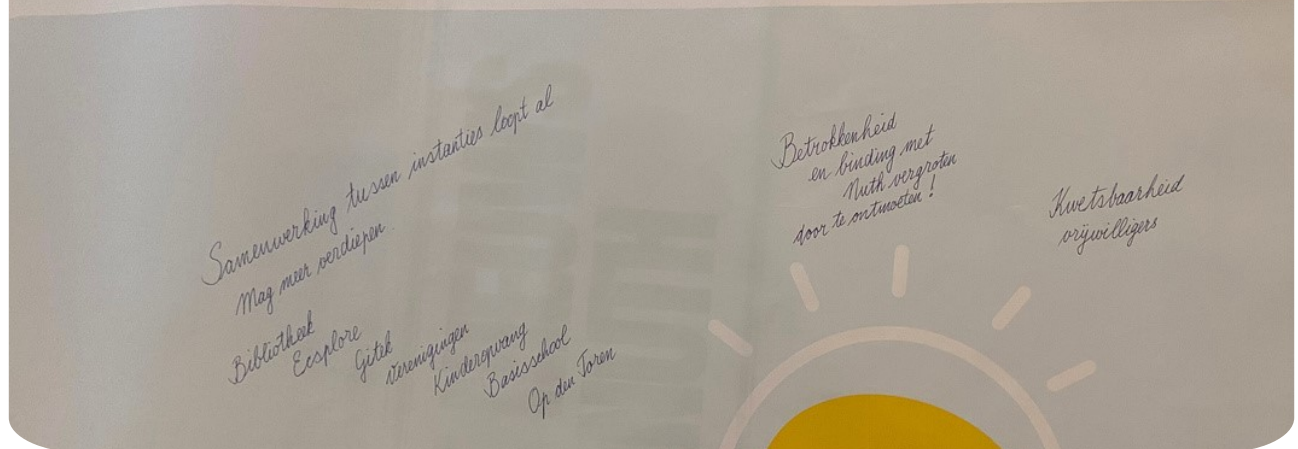 Samenwerking tussen instanties loopt al
Mag meer verdiepen.
Bibliotheek
Ecsplore
Gitek
Verenigingen
Kinderopvang
Basisschool
Op den Toren
Betrokkenheid
en binding met
Nuth vergroten
door te ontmoeten!
Kwetsbaarheid
vrijwilligers